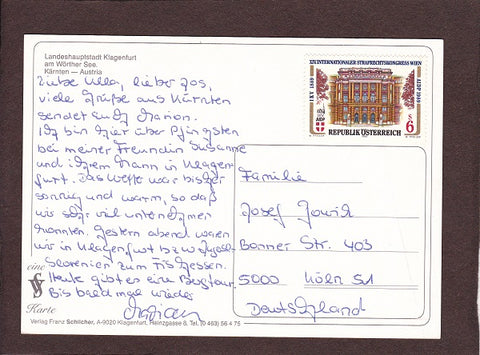 Landeshauptstadt Klagenfurt
am Wörther See.
Kärnten — Austria
Liebe Ulla, lieber Jos,
viele Grüße aus Kärnten
sendet Euch Marion.
Ich bin hier über Pfingsten
bei meiner Freundin Susanne
und ihrem Mann in Klagen-
furt. Das Wetter war bisher
sonnig und warm, so daß
wir sehr viel unternehmen
konnten. Gestern abend waren
wir in Klagenfurt bzw
Slovenien zum Fischessen.
Heute gibt es eine Bergtour.
Bis bald mal wieder
Marion
eine
Karte
Verlag Franz Schilcher, A-9020 Klagenfurt, Heinzgasse 8, Tel. (0 463) 56 4 75
XIV. INTERNATIONALER STRAFRECHTSKONGRESS WIEN
IKV 1889
AIDP 1989
REPUBLIK ÖSTERREICH
S 6
Familie
Josef
Bonner Str. 403
5000 Köln 51
Deutschland